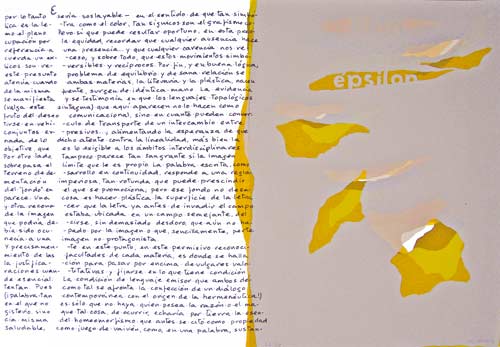 por lo tanto
E
sería soslayable – en el sentido de que tan simbó-
tica es la le-
tra como el color, tan sígnicos son el grafismo co-
mo el plano
llevo sí que puede resultar oportuno, en esta preo-
cupación por
la equidad, recordar que cualquier ausencia hace
referencia a
una presencia, y que cualquier carencia nos re-
cuerda un ex-
ceso, y sobre todo, que estos movimientos simbó-
licos son re-
versibles y recíprocos. Por fin, y en buena lógica,
este presunto
problema de equilibrio y de sana relación se
atenúa cuando
ambas materias, la literaria y la plástica, nacen
de la misma
fuente, surgen de idéntica mano. La evidencia
se manifiesta
y se testimonia en que los lenguajes topológicos
(valga este
sintagma) que aquí aparecen no lo hacen como
fruto del deseo
comunicacional, sino en cuanto pueden conver-
tirse en vehí-
culo de transporte de un intercambio entre
conjuntos ex-
presivos, alimentando la esperanza de que
nada de lo
dicho atente contra la linealidad, más bien la
objetive que
es lo exigible a los ámbitos interdisciplinares
Por otro lado
tampoco parece tan sangrante si la imagen
sobrepasa el
límite que le es propio la palabra escrita, como
terreno de de-
sarrollo en continuidad, responde a una regla
imperiosa, tan rotunda que puede prescindir
del "fondo" en
el que se promociona, pero ese fondo no des-
parece. Una
cosa es hacer plástica la superficie de la letra
y otra recono-
cer que la letra ya antes de invadir el campo
de la imagen
estaba ubicada en un campo semejante, del
que podría de-
cirse, sin demasiado desdoro, que aún no ha-
bía sido ocu-
pado por la imagen o que, sencillamente, per te
imagen no protagonista.
Y precisamen-
te en este punto, en este permisivo reconoci-
miento de las
facultades de cada materia, es donde se halla
la justifica-
ción para pasar por encima de vulgares valo-
raciones cuan-
titativas y fijarse en lo que tiene condición
de esencial.
La condición de lenguaje emisor que ambos de-
tentan. Pues
como tal se afronta la confección de un diálogo
(¡palabra tan
contemporánea con el origen de la hermenéutica!)
en el que no
es sólo que no haya quien posea la razón o el ma-
gisterio sino
que tal cosa, de ocurrir, echaría por tierra la esen-
cia misma
del homeomorfismo que antes se citó como propiedad
saludable,
como juego de vaivén, como, en una palabra, sustan-
epsilon